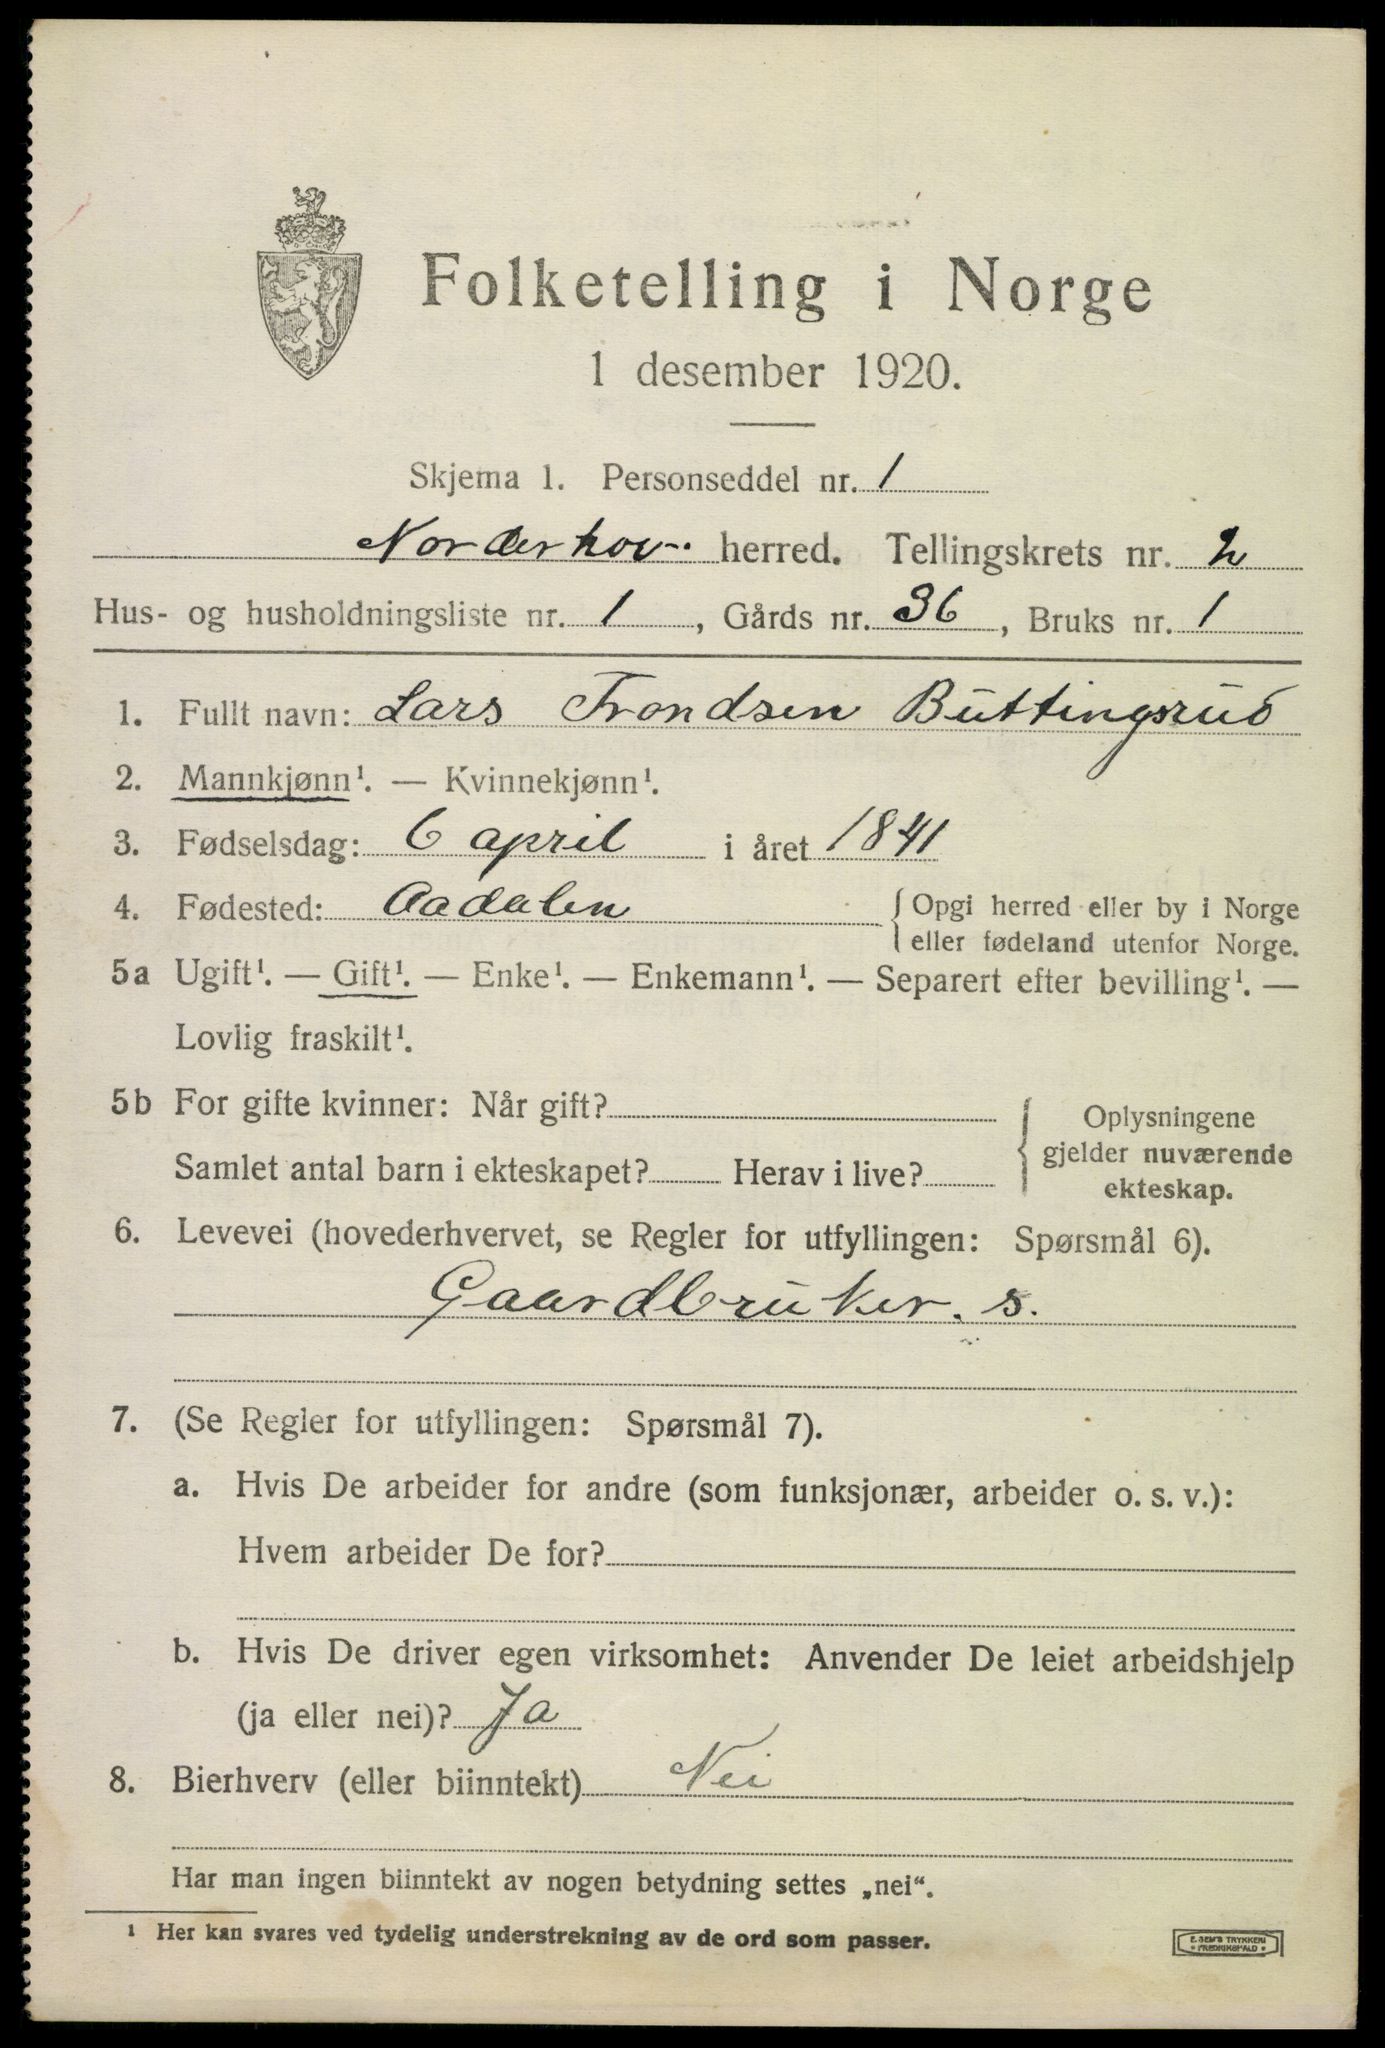 Folketelling i Norge
1 desember 1920.
Skjema 1. Personseddel nr. 1
Norderhov. herred. Tellingskrets nr. 2
Hus- og husholdningsliste nr. 1, Gårds nr. 36, Bruks nr. 1
1. Fullt navn: Lars Trondsen Buttingsrud
2. Mannkjønn¹. — Kvinnekjønn¹.
3. Fødselsdag: 6 april i året 1841
4. Fødested: Aadalen { Opgi herred eller by i Norge
eller fødeland utenfor Norge.
5a Ugift¹. — Gift¹. — Enke¹. — Enkemann¹. — Separert efter bevilling¹. —
Lovlig fraskilt¹.
5b For gifte kvinner: Når gift? { Oplysningene
gjelder nuværende
Samlet antal barn i ekteskapet? Herav i live?
ekteskap.
6. Levevei (hovederhvervet, se Regler for utfyllingen: Spørsmål 6).
Gaardbruker. s.
7. (Se Regler for utfyllingen: Spørsmål 7).
a. Hvis De arbeider for andre (som funksjonær, arbeider o. s. v.):
Hvem arbeider De for?
b. Hvis De driver egen virksomhet: Anvender De leiet arbeidshjelp
(ja eller nei)? Ja
8. Bierhverv (eller biinntekt) Nei
Har man ingen biinntekt av nogen betydning settes „nei“.
¹ Her kan svares ved tydelig understrekning av de ord som passer.
E. SEM'S TRYKKERI
FREDRIKSHALD